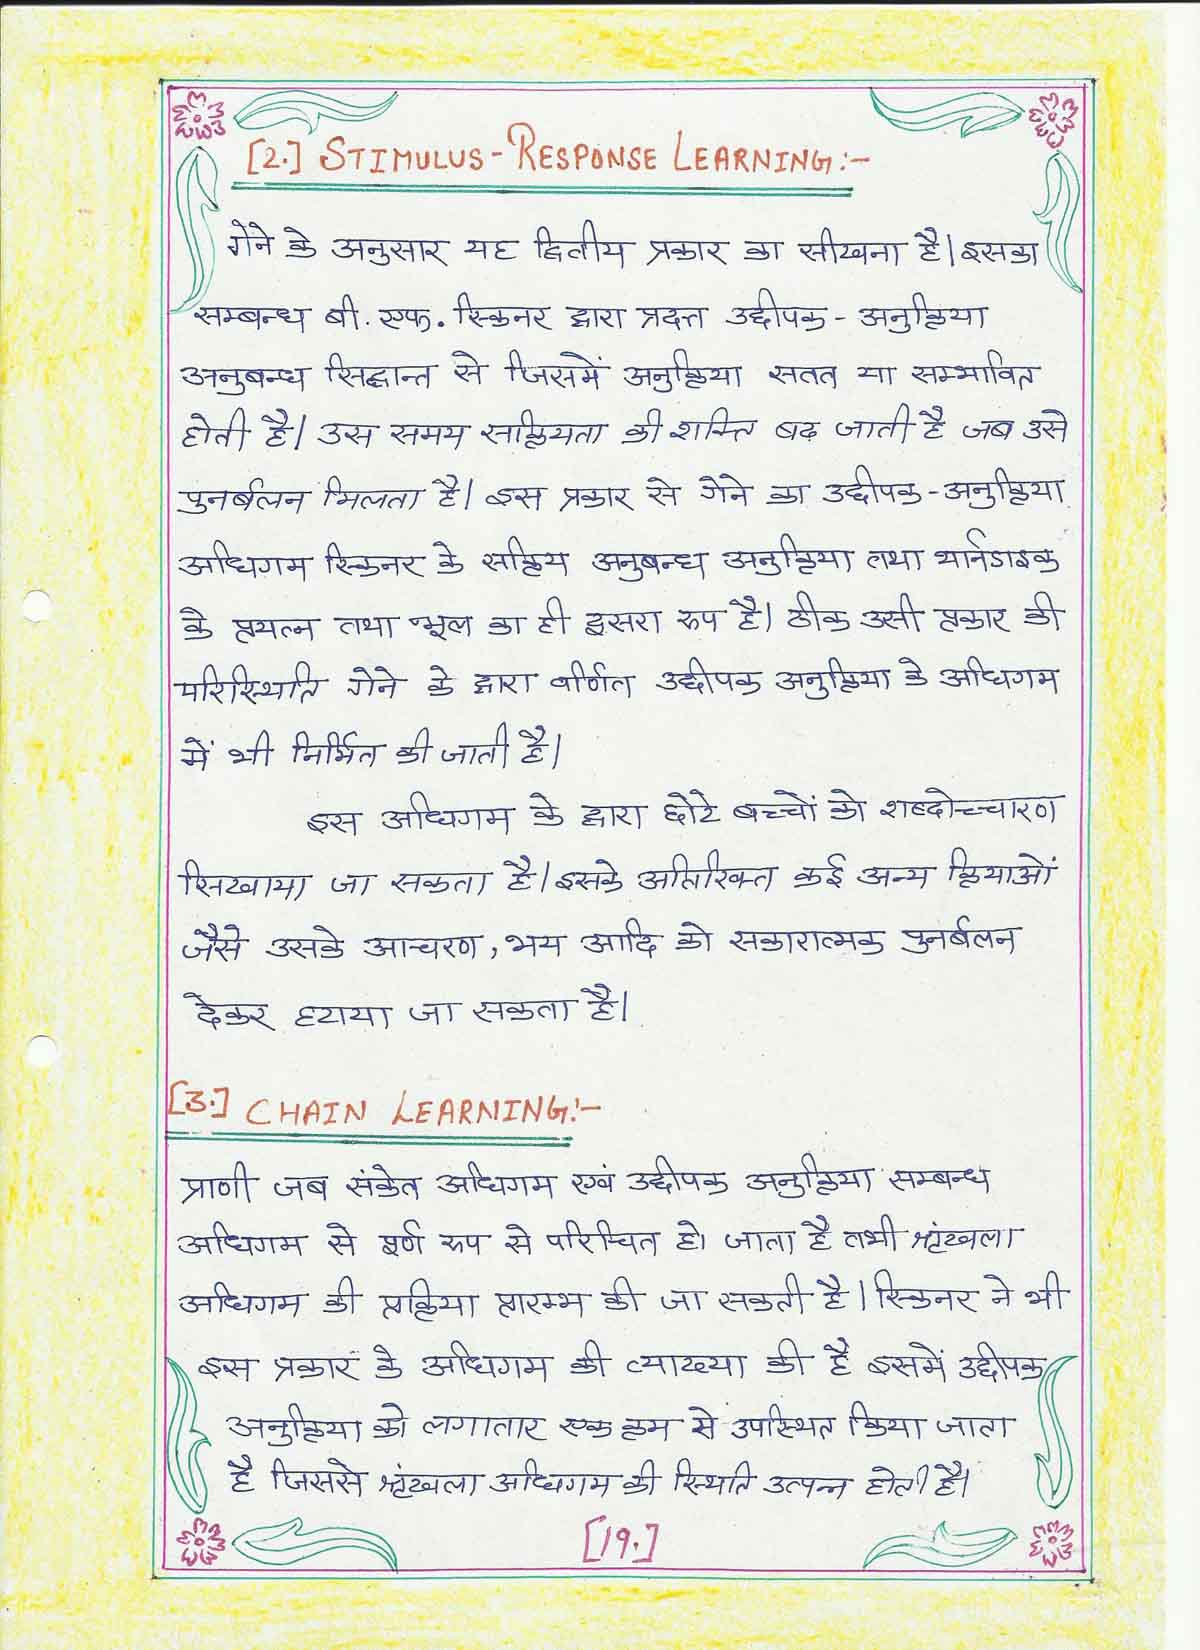 [2.] STIMULUS-RESPONSE LEARNING:-
गेने के अनुसार यह द्वितीय प्रकार का सीखना है। इसका
सम्बन्ध बी. एफ. स्किनर द्वारा प्रदत्त उद्दीपक - अनुक्रिया
अनुबन्ध सिद्धान्त से जिसमें अनुक्रिया सतत या सम्भावित
होती है। उस समय सक्रियता की शक्ति बढ़ जाती है जब उसे
पुनर्बलन मिलता है। इस प्रकार से गेने का उद्दीपक-अनुक्रिया
अधिगम स्किनर के सक्रिय अनुबन्ध अनुक्रिया तथा थार्नडाइक
के प्रयत्न तथा भूल का ही दूसरा रूप है। ठीक उसी प्रकार की
परिस्थिति गेने के द्वारा वर्णित उद्दीपक अनुक्रिया के अधिगम
में भी निर्मित की जाती है।
इस अधिगम के द्वारा छोटे बच्चों को शब्दोच्चारण
सिखाया जा सकता है। इसके अतिरिक्त कई अन्य क्रियाओं
जैसे उसके आचरण, भय आदि को सकारात्मक पुनर्बलन
देकर हटाया जा सकता है।
[3.] CHAIN LEARNING:-
प्राणी जब संकेत अधिगम एवं उद्दीपक अनुक्रिया सम्बन्ध
अधिगम से पूर्ण रूप से परिचित हो जाता है तभी श्रृंखला
अधिगम की प्रक्रिया प्रारम्भ की जा सकती है। स्किनर ने भी
इस प्रकार के अधिगम की व्याख्या की है इसमें उद्दीपक
अनुक्रिया को लगातार एक क्रम से उपस्थित किया जाता
है जिससे श्रृंखला अधिगम की स्थिति उत्पन्न होती है।
[19.]